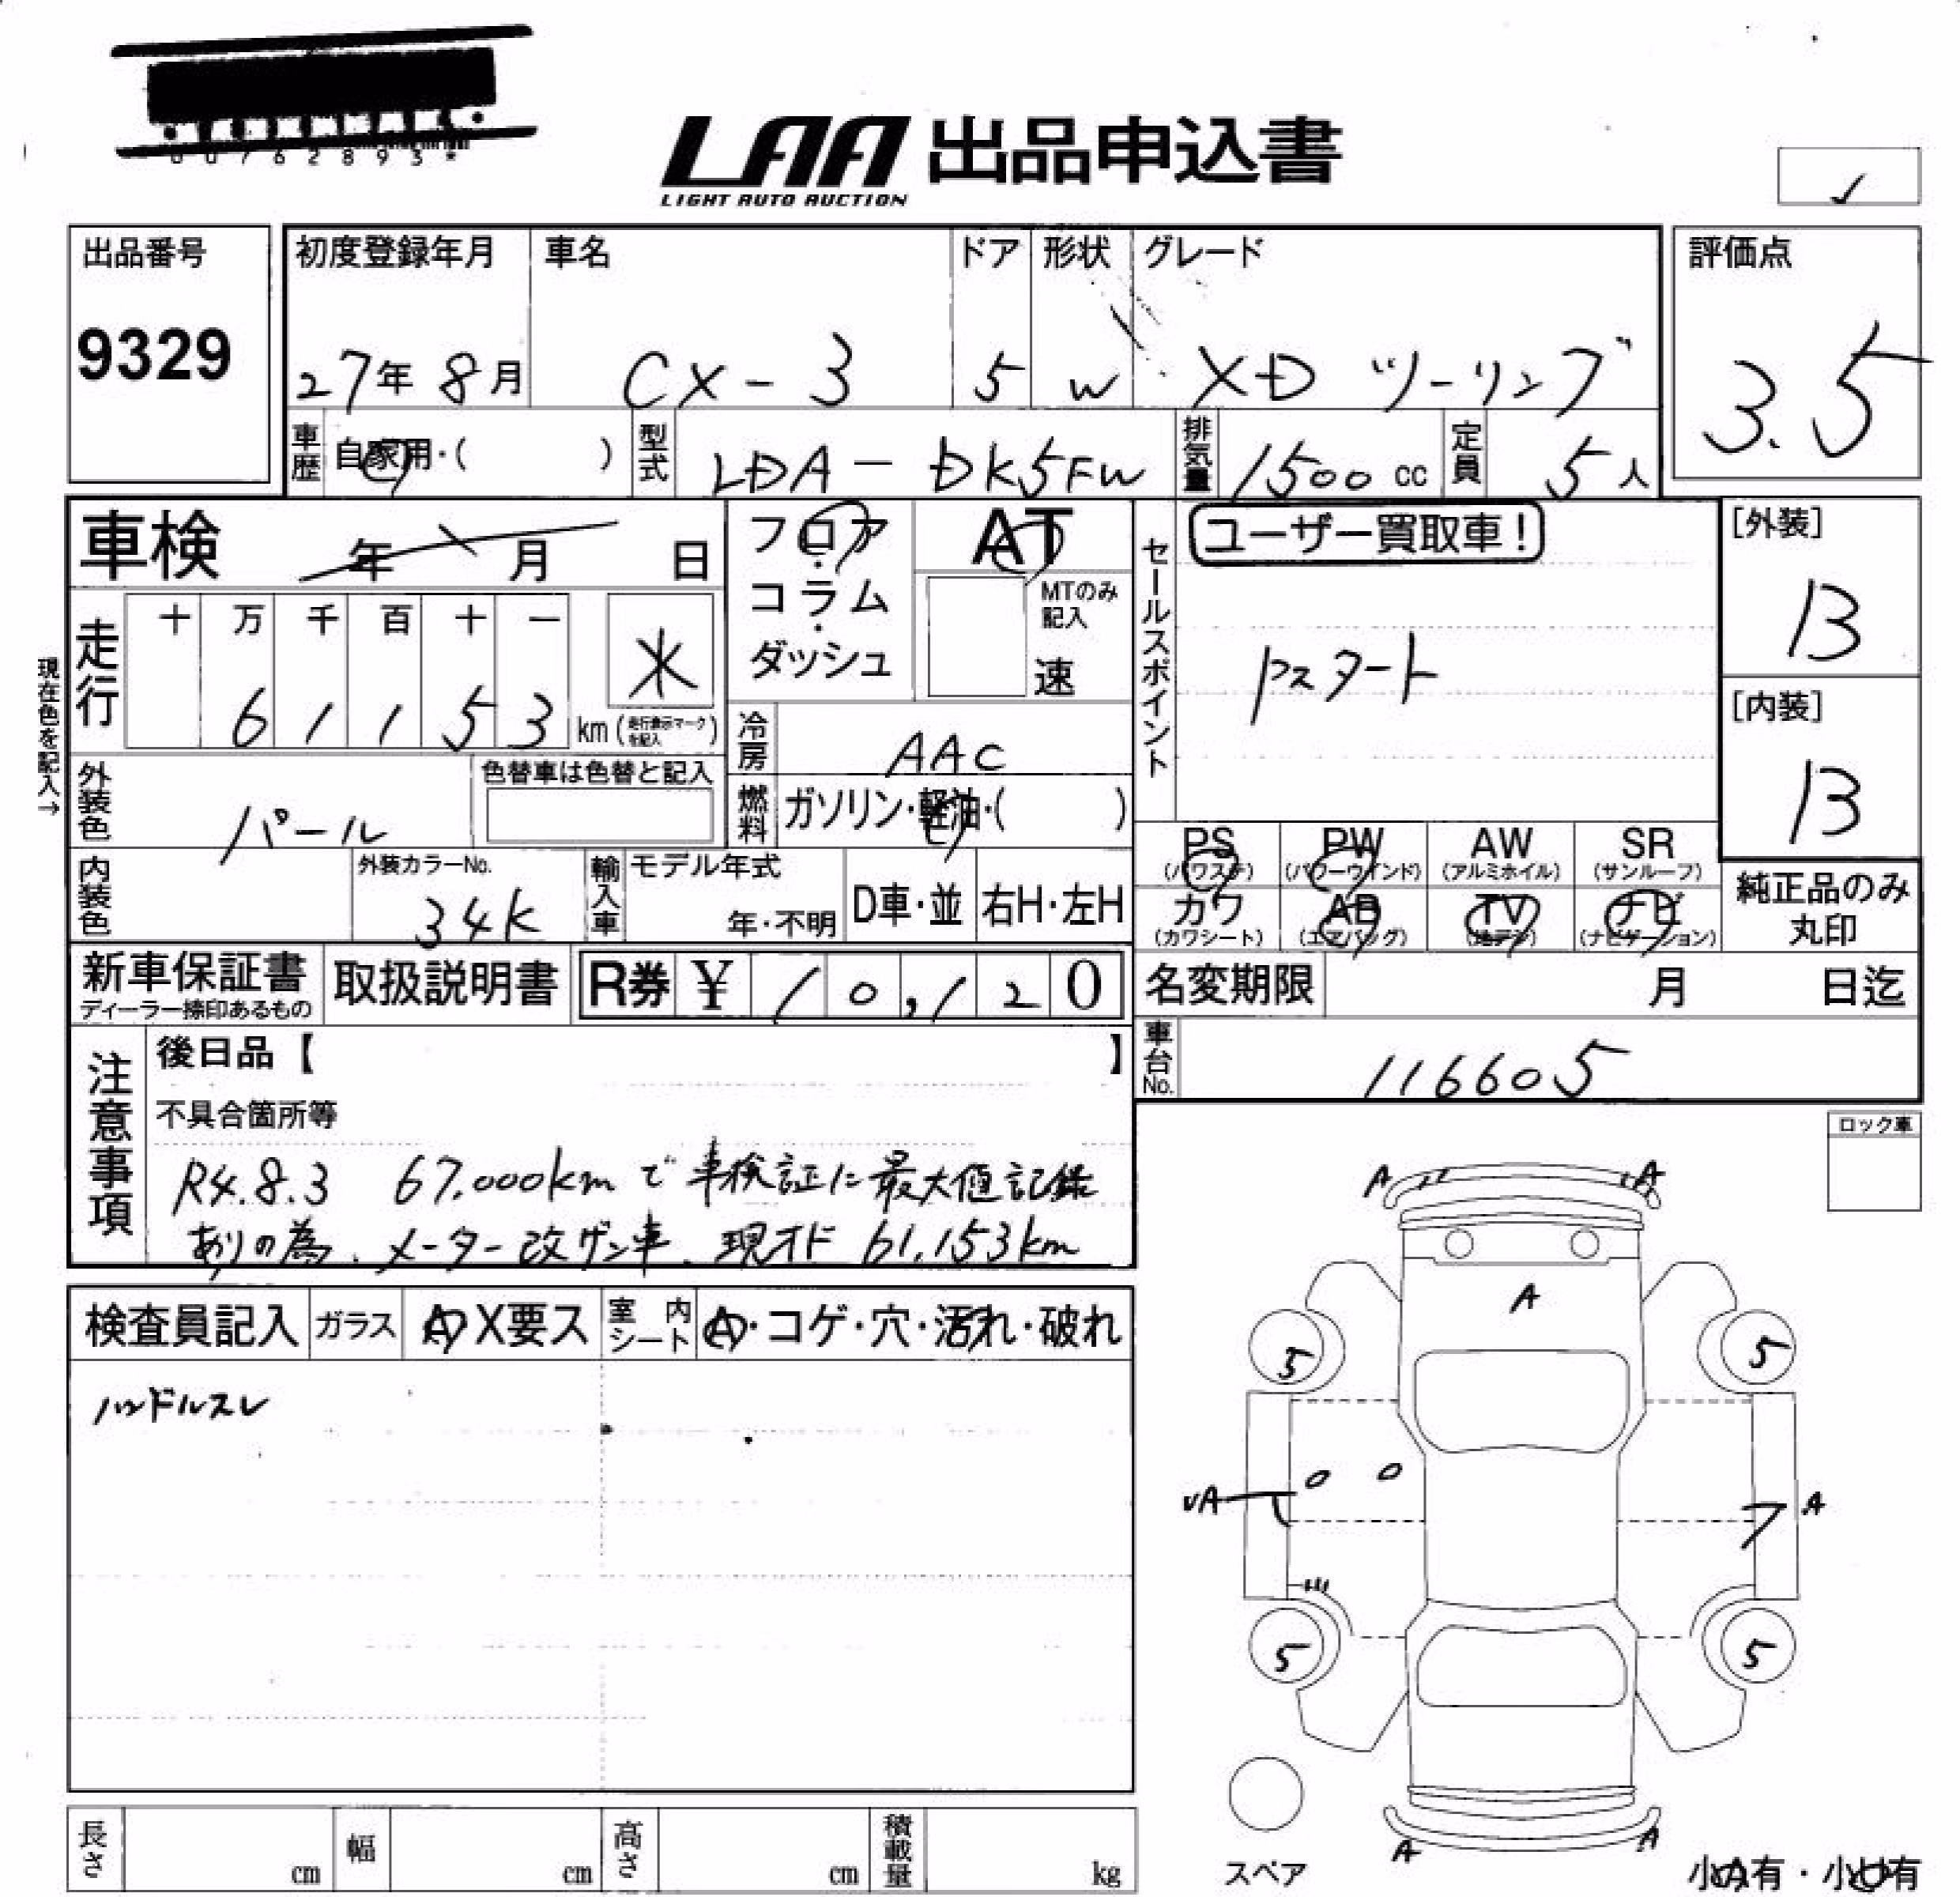 00762893*
LAA 出品申込書
LIGHT AUTO AUCTION
出品番号
9329
初度登録年月
27年 8月
車名
CX-3
ドア
5
形状
W
グレード
XD ツーリング
評価点
3.5
車歴
自家用・( )
型式
LDA-DK5FW
排気量
1500 cc
定員
5人
車検 年 月 日
フロア
・
コラム
・
ダッシュ
AT
MTのみ
記入
速
セールスポイント
ユーザー買取車!
Pスタート
[外装]
B
[内装]
B
現在色を記入→
走行
十 万 千 百 十 一
6 1 1 5 3
km (走行表示マークを記入)
*
冷房
AAC
燃料
ガソリン・軽油・( )
外装色
パール
色替車は色替と記入
内装色
外装カラーNo.
34K
輸入車
モデル年式
年・不明
D車・並
右H・左H
PS
(パワステ)
PW
(パワーウインド)
AW
(アルミホイル)
SR
(サンルーフ)
カワ
(カワシート)
AB
(エアバッグ)
TV
(地デジ)
ナビ
(ナビゲーション)
純正品のみ
丸印
新車保証書
ディーラー捺印あるもの
取扱説明書
R券 ¥ 10,120
名変期限 月 日迄
車台No.
116605
注意事項
後日品【 】
不具合箇所等
R4.8.3 67.000kmで車検証に最大値記録
ありの為、メーター改ザン車、現オド 61,153km
ロック車
検査員記入
ガラス
A X要ス
室内シート
A・コゲ・穴・汚れ・破れ
ハンドルスレ
A A
A
5 5
UA
A
5 5
A A
スペア
小A有・小U有
長さ cm
幅 cm
高さ cm
積載量 kg